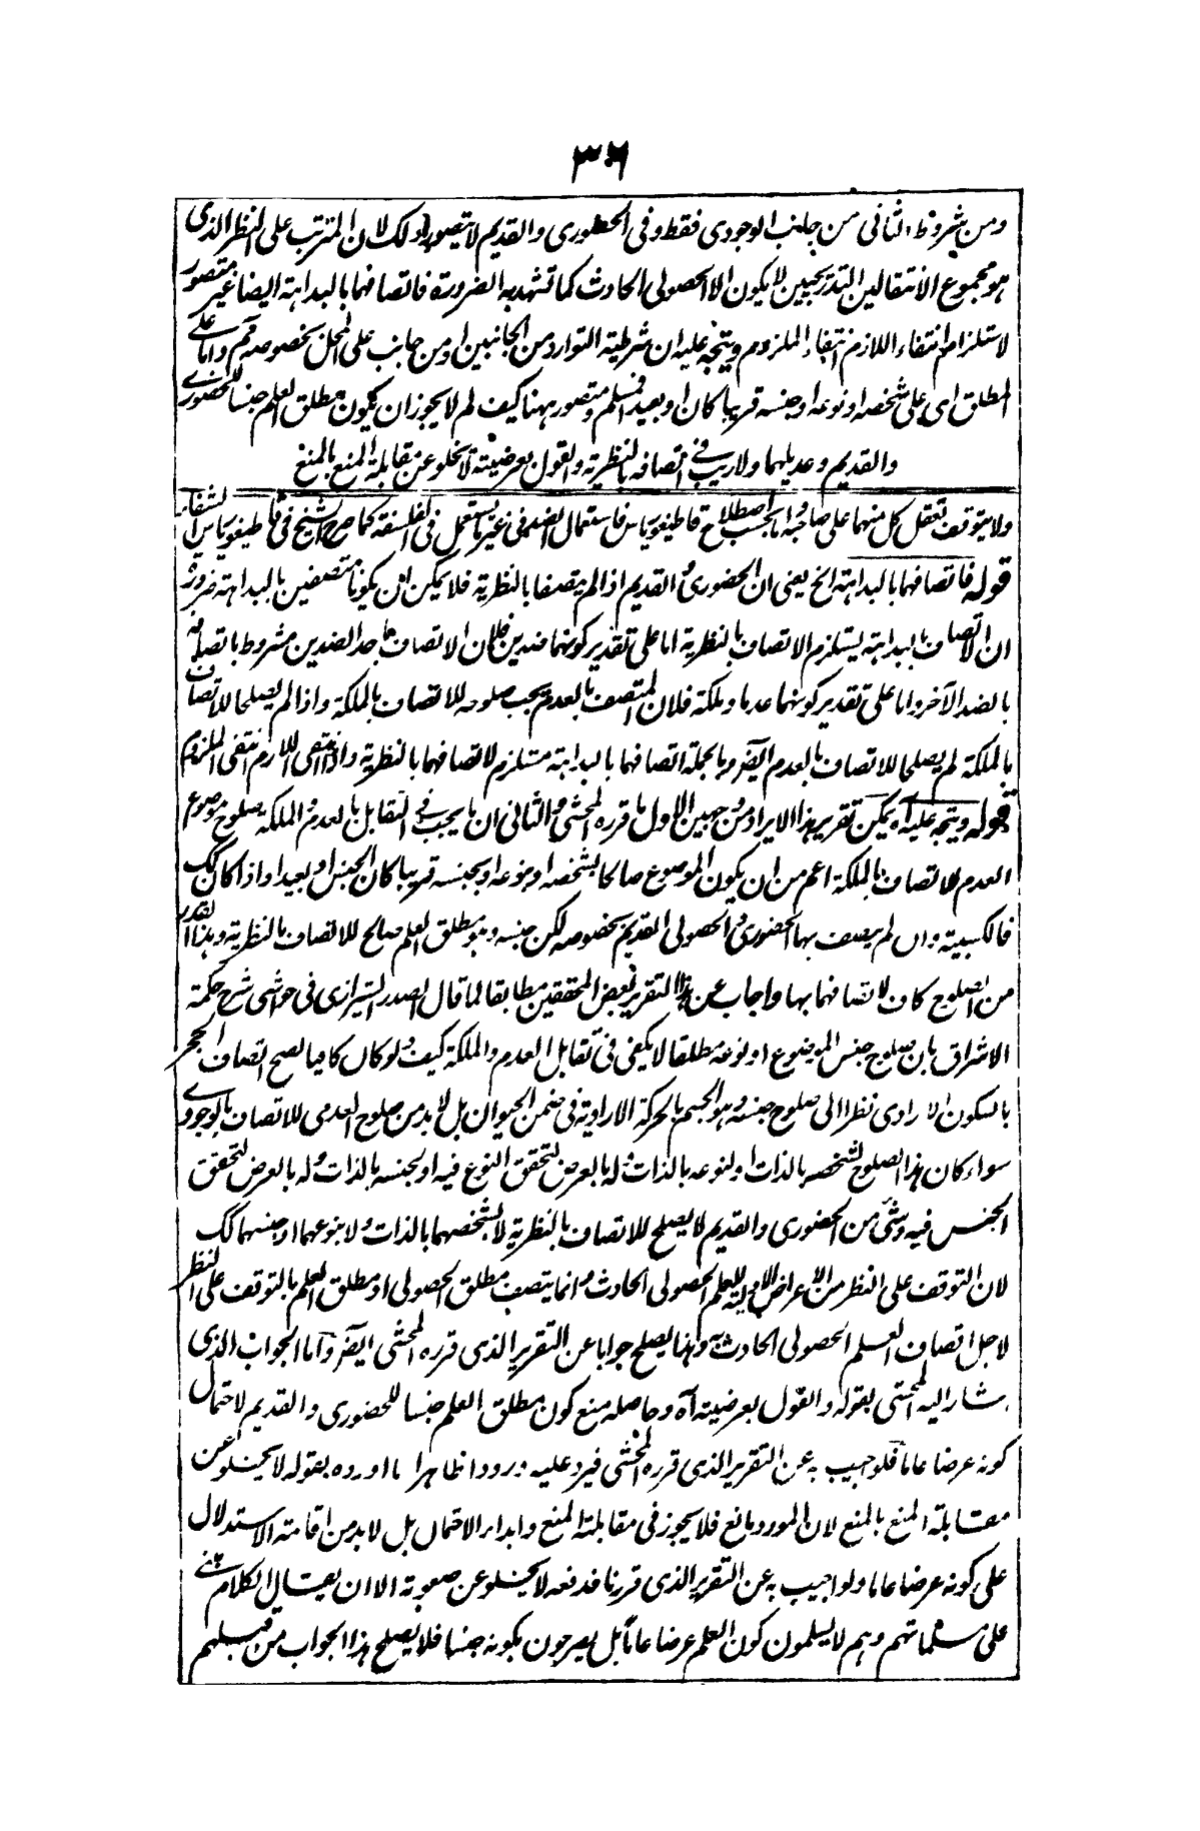 ٣٦
ومن شروط الثانى من جانب الوجودى فقط وفى الحضورى والقديم لا يتصور ذلك لان المترتب على النظر الذى
هو مجموع الانتقالين التدريجيين لا يكون الا الحصولى الحادث كما تشهد به الضرورة فاتصافهما بالبداهة ايضا غير متصور
لاستلزام انتفاء اللازم انتفاء الملزوم ويتجه عليه ان شرطية التوارد من الجانبين او من جانب على المحل بخصوصه مم واما على
المطلق اى على شخصه او نوعه او جنسه قريبا كان او بعيدا فمسلم ومتصور ههنا كيف لم لا يجوز ان يكون مطلق العلم جنسا للحضورى
والقديم وعديلهما ولا ريب فى اتصافه بالنظرية والقول بعرضيته لا يخلو عن مقابلة المنع بالمنع
ولا يتوقف تعقل كل منهما على صاحبه واما بحسب اصطلاح قاطيغورياس فاستعمال الضد فى غير ما يستعمل فى الفلسفة كما صرح الشيخ فى قاطيغورياس الشفاء
قوله فاتصافهما بالبداهة الخ يعنى ان الحضورى والقديم اذا لم يتصفا بالنظرية فلا يمكن ان يكونا متصفين بالبداهة ضرورة
ان الاتصاف بالبداهة يستلزم الاتصاف بالنظرية اما على تقدير كونهما ضدين فلان الاتصاف باحد الضدين مشروط باتصافه
بالضد الآخر واما على تقدير كونهما عدما وملكة فلان المتصف بالعدم يجب صلوحه للاتصاف بالملكة واذا لم يصلحا للاتصاف
بالملكة لم يصلحا للاتصاف بالعدم ايضا وبالجملة اتصافهما بالبداهة مستلزم لاتصافهما بالنظرية واذا انتفى اللازم انتفى الملزوم
قوله ويتجه عليه آه يمكن تقرير هذا الايراد من وجهين الاول ما قرره المحشى والثانى ان ما يجب فى التقابل بالعدم والملكة صلوح موضوع
العدم للاتصاف بالملكة اعم من ان يكون الموضوع صالحا بشخصه او بنوعه او بجنسه قريبا كان الجنس او بعيدا واذا كان كك
فالكسبية وان لم يتصف بها الحضورى والحصولى القديم بخصوصه لكن جنسه وهو مطلق العلم صالح للاتصاف بالنظرية وهذا القدر
من الصلوح كان لاتصافهما بها واجاب عن هذا التقرير بعض المحققين مطابقا لما قال الصدر الشيرازى فى حواشى شرح حكمة
الاشراق بان صلوح جنس الموضوع او نوعه مطلقا لا يكفى فى تقابل العدم والملكة كيف ولو كان كافيا لصح اتصاف الحجر
بالسكون الارادى نظرا الى صلوح جنسه وهو الجسم بالحركة الارادية فى ضمن الحيوان بل لا بد من صلوح العدمى للاتصاف بالوجودى
سواء كان هذا الصلوح لشخصه بالذات او لنوعه بالذات وله بالعرض لتحقق النوع فيه او لجنسه بالذات وله بالعرض لتحقق
الجنس فيه وشئ من الحضورى والقديم لا يصلح للاتصاف بالنظرية لا بشخصهما بالذات ولا بنوعهما او جنسهما كك
لان التوقف على النظر من الاعراض الاولية للعلم الحصولى الحادث وانما يتصف مطلق الحصولى او مطلق العلم بالتوقف على النظر
لاجل اتصاف العلم الحصولى الحادث به وهذا يصلح جوابا عن التقرير الذى قرره المحشى ايضا واما الجواب الذى
اشار اليه المحشى بقوله والقول بعرضيته آه وحاصله منع كون مطلق العلم جنسا للحضورى والقديم لاحتمال
كونه عرضا عاما فلو اجيب به عن التقرير الذى قرره المحشى فيرد عليه ورودا ظاهرا ما اورده بقوله لا يخلو عن
مقابلة المنع بالمنع لان المورد مانع فلا يجوز فى مقابلة المنع وابداء الاحتمال بل لا بد من اقامة الاستدلال
على كونه عرضا عاما ولو اجيب به عن التقرير الذى قررنا فدفعه لا يخلو عن صعوبة الا ان يقال الكلام مبنى
على مسلماتهم وهم لا يسلمون كون العلم عرضا عاما بل يصرحون بكونه جنسا فلا يصلح هذا الجواب من قبلهم